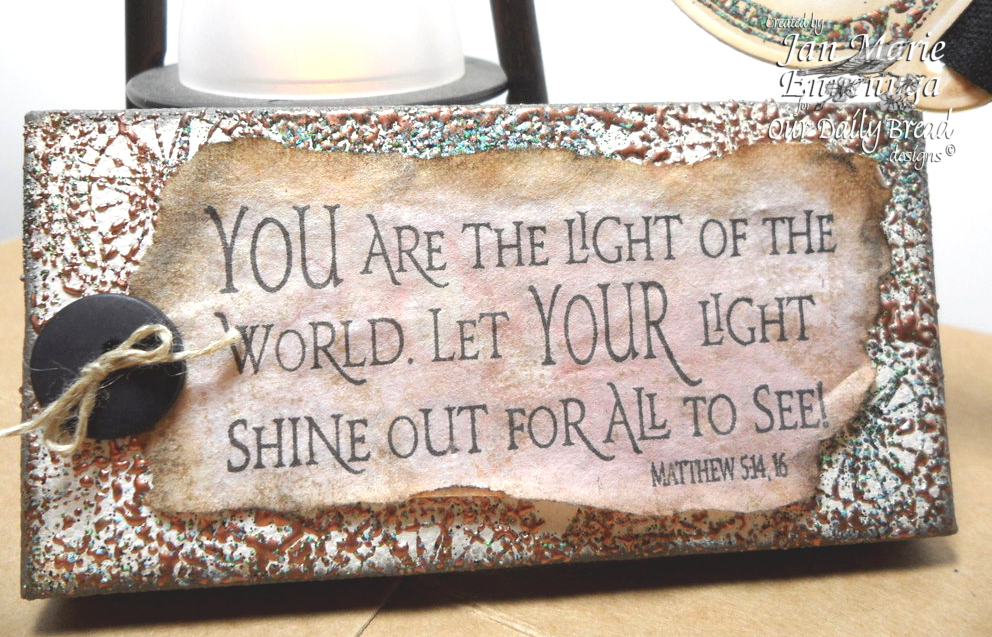 Created by
Jan Marie
for
Our Daily Bread
designs ©
YOU ARE THE LIGHT OF THE
WORLD. LET YOUR LIGHT
SHINE OUT FOR ALL TO SEE!
MATTHEW 5:14, 16